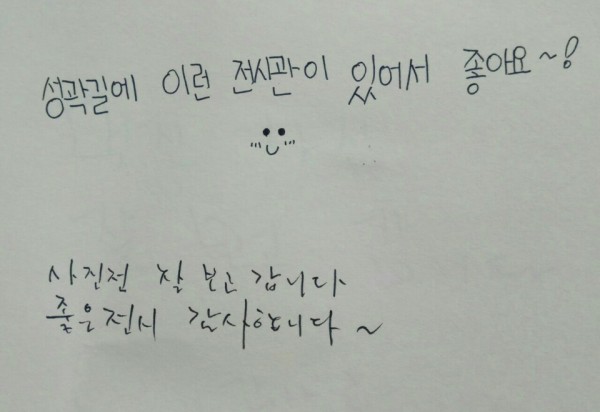 성곽길에 이런 전시관이 있어서 좋아요~!
사진전 잘 보고 갑니다
좋은 전시 감사합니다~